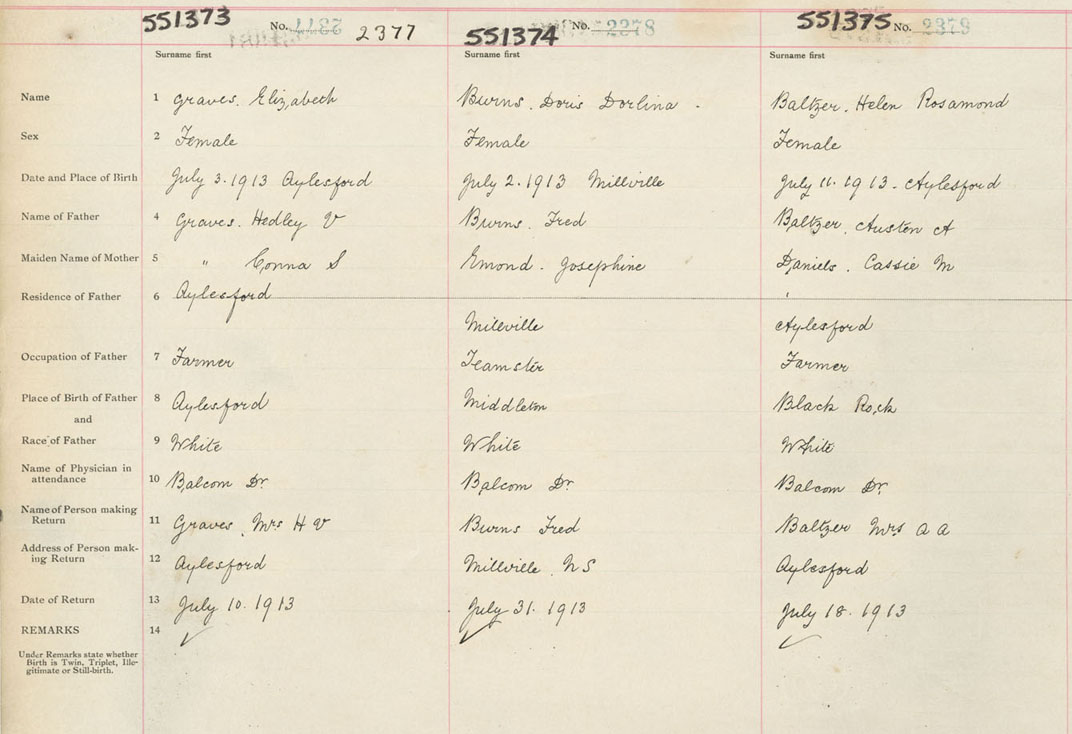 551373 No. 2377 2377 551374 No. 2378 551375 No. 2379
Surname first Surname first Surname first
Name 1 Graves. Elizabeth Burns. Doris Dorlina. Baltzer. Helen Rosamond
Sex 2 Female Female Female
Date and Place of Birth 3 July 3. 1913 Aylesford July 2. 1913 Millville July 11. 1913 - Aylesford
Name of Father 4 Graves. Hedley V Burns. Fred Baltzer. Austen A
Maiden Name of Mother 5 " S Emond. Josephine Daniels. Cassie M
Residence of Father 6 Aylesford
Millville Aylesford
Occupation of Father 7 Farmer Teamster Farmer
Place of Birth of Father 8 Aylesford Middleton Black Rock
and
Race of Father 9 White White White
Name of Physician in
attendance 10 Balcom Dr. Balcom Dr. Balcom Dr.
Name of Person making
Return 11 Graves. Mrs H V Burns Fred Baltzer Mrs A A
Address of Person mak-
ing Return 12 Aylesford Millville. N S Aylesford
Date of Return 13 July 10. 1913 July 31. 1913 July 18. 1913
REMARKS 14 ✓ ✓ ✓
Under Remarks state whether
Birth is Twin, Triplet, Ille-
gitimate or Still-birth.